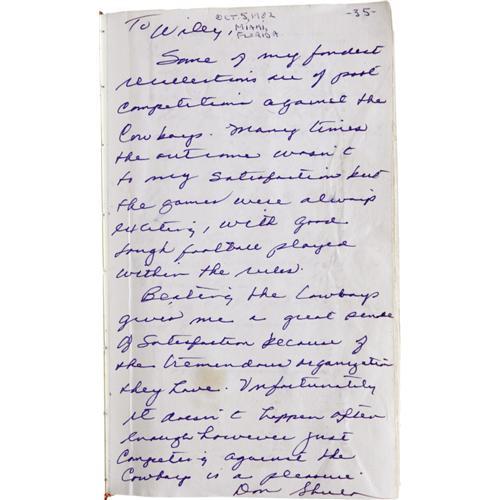 OCT. 5, 1982 -35-
To Wiley, MIAMI,
FLORIDA
Some of my fondest
recollections are of past
competitions against the
Cowboys. Many times
the outcome wasn't
to my satisfaction but
the games were always
exciting, with good
tough football played
within the rules.
Beating the Cowboys
gives me a great sense
of satisfaction because of
the tremendous organization
they have. Unfortunately
it doesn't happen often
enough however just
competing against the
Cowboys is a pleasure.
Don Shula